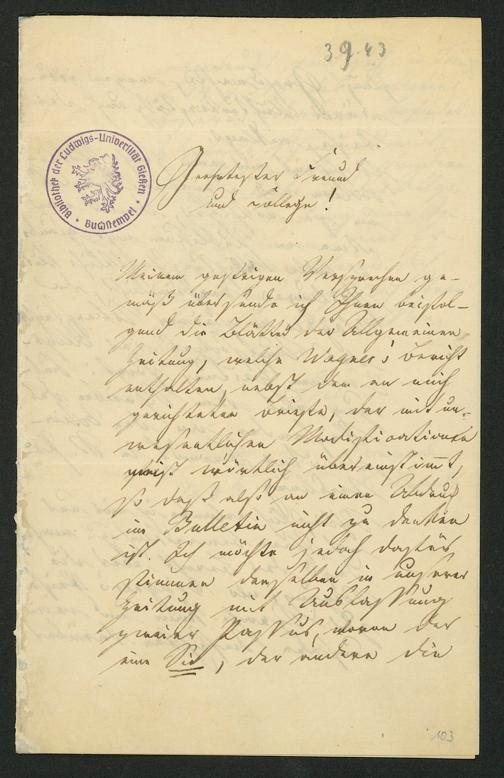 3.9.43
Bibliothek der Ludwigs-Universität Gießen
Buchstempel
Geehrtester Freund
und College!
Meinem gestrigen Versprechen ge-
mäß übersende ich Ihnen beifol-
gend die Blätter der Allgemeinen
Zeitung, welche Wagner's Bericht
enthalten, nebst dem an mich
gerichteten Briefe, der mit un-
wesentlichen Modificationen
meist wörtlich übereinstimmt,
so daß also an einen Abdruck
im Bulletin nicht zu denken
ist. Ich möchte jedoch dafür
stimmen denselben in unserer
Zeitung mit Auslassung
zweier Passus, wovon der
eine Sie, der andere die
103